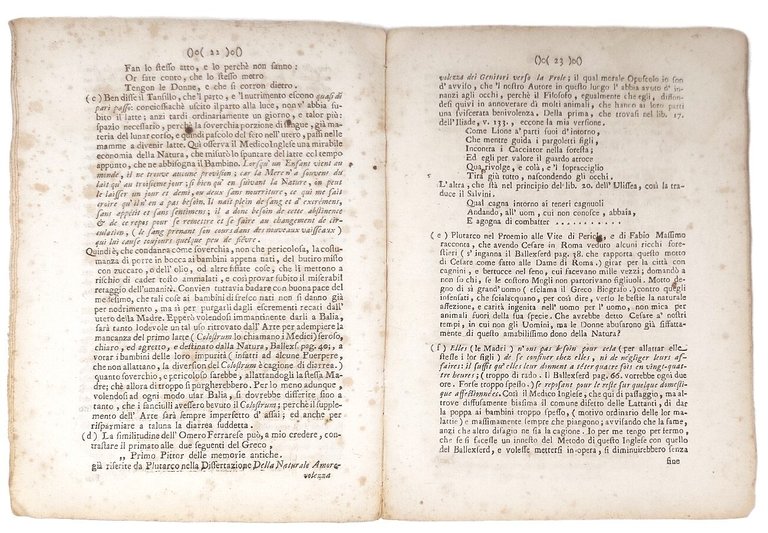 ()o( 22 )o()
Fan lo stesso atto, e lo perchè non sanno:
Or fate conto, che lo stesso metro
Tengon le Donne, e che si corron dietro.
(c) Ben disse il Tansillo, che 'l parto, e 'l nutrimento escono quasi di
pari passo: conciossiachè uscito il parto alla luce, non v' abbia su-
bito il latte: anzi tardi ordinariamente un giorno, e talor più:
spazio necessario, perchè la soverchia porzione di sangue, già ma-
teria del lunar corso, e quindi pascolo del feto nell'utero, passi nelle
mamme a divenir latte. Quì osserva il Medico Inglese una mirabile
economia della Natura, che misurò lo spuntare del latte col tempo
appunto, che ne abbisogna il Bambino. Lorsqu'un Enfant vient au
monde, il ne trouve aucune provision; car la Mere n'a souvent du
lait qu'au troisieme jour; si bien qu'en suivant la Nature, on peut
le laisser un jour et demi, ou deux sans nourriture, ce qui me fait
croire qu'il n'en a pas besoin. Il nait plein de sang et d'excrémens,
sans appétit et sans sentimens; il a donc besoin de cette abstinence
& de ce repos pour se remettre et se faire au changement de cir-
culation, ( le sang prenant son cours dans des nouveaux vaisseaux )
qui lui cause toujours quelque peu de fièvre.
Quindi è, che condannata come soverchia, non che pericolosa, la costu-
manza di porre in bocca ai bambini appena nati, del butiro misto
con zuccaro, o dell'olio, od altre fissate cose, che li mettono a
rischio di cader tosto ammalati, e così provar subito il miserabil
retaggio dell'umanità. Convien tuttavia badare con buona pace del
medesimo, che tali cose ai bambini di fresco nati non si danno già
per nodrimento, ma sì per purgarli dagli escrementi recati dall'
utero della Madre. Epperò volendosi immantinenti darli a Balia,
sarà tanto lodevole un tal uso ritrovato dall' Arte per adempiere la
mancanza del primo latte ( Colostrum lo chiamano i Medici) sieroso,
chiaro, ed agretto, e destinato dalla Natura, Ballexs. pag. 40; a
votar i bambini delle loro impurità ( infatti ad alcune Puerpere,
che non allattano, la diversion del Colostrum è cagione di diarrea.)
quanto soverchio, e pericoloso sarebbe, allattandogli la stessa Ma-
dre; chè allora di troppo si purgherebbero. Per lo meno adunque,
volendosi ad ogni modo usar Balia, si dovrebbe differire sino a
tanto, che i fanciulli avessero bevuto il Colostrum; perchè il supple-
mento dell' Arte sarà sempre imperfetto d' assai; ed anche per
risparmiare a taluna la diarrea suddetta.
(d) La similitudine dell'Omero Ferrarese può, a mio credere, con-
trastare il primato alle due seguenti del Greco,
,, Primo Pittor delle memorie antiche.
già riferite da Plutarco nella Dissertazione Della Naturale Amore-
volezza
()o( 23 )o()
volezza dei Genitori verso la Prole; il qual morale Opuscolo io son
d' avviso, che 'l nostro Autore in questo luogo l' abbia avuto d' in-
nanzi agli occhi, perchè il Filosofo, egualmente che egli, diffon-
desi quivi in annoverare di molti animali, che hanno ai loro parti
una sviscerata benivolenza. Della prima, che trovasi nel lib. 17.
dell'Iliade, v. 133. eccone la mia versione.
Come Lione a' parti suoi d'intorno,
Che mentre guida i pargoletti figli,
Incontra i Cacciator nella foresta;
Ed egli per valore il guardo atroce
Qua rivolge, e colà, e 'l sopracciglio
Tira giù tutto, nascondendo gli occhi.
L'altra, che stà nel principio del lib. 20. dell' Ulissea, così la tra-
duce il Salvini.
Qual cagna intorno ai teneri cagnuoli
Andando, all' uom, cui non conosce, abbaia,
E agogna di combatter . . . . . . . . . .
(e) Plutarco nel Proemio alle Vite di Pericle, e di Fabio Massimo
racconta, che avendo Cesare in Roma veduto alcuni ricchi fore-
stieri ( s'inganna il Ballexserd pag. 58. che rapporta questo motto
di Cesare come fatto alle Dame di Roma. ) girar per la città con
cagnini, e bertucce nel seno, cui facevano mille vezzi; domandò a
non so chi, se le costoro Mogli non partorivano figliuoli. Motto de-
gno di sì grand'uomo ( esclama il Greco Biografo.) contro quegli
insensati, che scialacquano, per così dire, verso le bestie la naturale
affezione, e carità ingenita nell' uomo per l' uomo, non mica per
animali fuori della sua specie. Che avrebbe detto Cesare a' nostri
tempi, in cui non gli Uomini, ma le Donne abusarono già siffatta-
mente di questo amabilissimo dono della Natura?
(f) Elles ( le Madri ) n'ont pas besoin pour cela ( per allattar elle-
stesse i lor figli ) de se confiner chez elles, ni de négliger leurs af-
faires: il suffit qu'elles leur donnent a téter quatre fois en vingt-qua-
tre heures; ( troppo di rado. Il Ballexserd pag. 66. vorrebbe ogni due
ore. Forse troppo spesso. ) se reposant pour le reste sur quelque domesti-
que affectionnée. Così il Medico Inglese, che quì di passaggio, ma al-
trove diffusamente biasima il comune difetto delle Lattanti, di dar
la poppa ai bambini troppo spesso, ( motivo ordinario delle lor ma-
lattie ) e massimamente sempre che piangono; avvisando che la fame,
anzi che altro disagio ne sia la cagione. Io per me tengo per fermo,
che se si facesse un innesto del Metodo di questo Inglese con quello
del Ballexserd, e volesse mettersi in opera, si diminuirebbero senza
fine